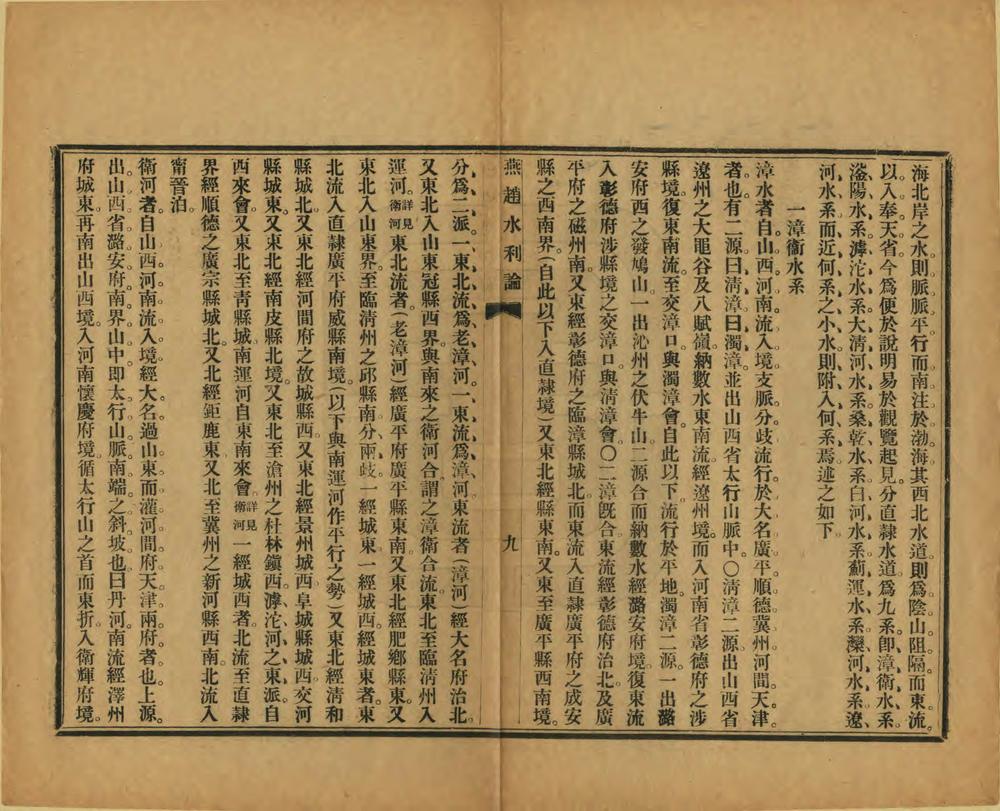 海北岸之水則脈脈平行而南注於渤海其西北水道則爲陰山阻隔而東流。
以入奉天省今爲便於說明易於觀覽起見分直隸水道爲九系卽漳衛水系、
滏陽水系、滹沱水系、大清河水系、桑乾水系、白河水系、薊運水系、灤河水系、遼
河水系而近何系之小水則附入何系焉述之如下。
一漳衞水系
漳水者自山西河南流入境支脈分歧流行於大名廣平順德冀州河間天津。
者也。有二源曰淸漳曰濁漳並出山西省太行山脈中。〇淸漳二源出山西省
遼州之大黽谷及八賦嶺納數水東南流經遼州境。而入河南省彰德府之涉
縣境。復東南流。至交漳口與濁漳會。自此以下。流行於平地。濁漳二源。一出潞
安府西之發鳩山。一出沁州之伏牛山。二源合而納數水經潞安府境。復東流
入彰德府涉縣境之交漳口。與淸漳會。〇二漳旣合東流經彰德府治北及廣
平府之磁州南。又東經彰德府之臨漳縣城北而東流入直隸廣平府之成安
縣之西南界。(自此以下入直隸境)又東北經縣東南。又東至廣平縣西南境。
燕趙水利論
九
分爲二派一東北流爲老漳河。一東流爲漳河東流者(漳河)經大名府治北。
又東北入山東冠縣西界。與南來之衛河合。謂之漳衛合流。東北至臨淸州入
運河。詳見衛河東北流者(老漳河)經廣平府廣平縣東南又東北經肥鄉縣東。又
東北入山東界至臨淸州之邱縣南。分兩歧。一經城東一經城西。經城東者。東
北流入直隸廣平府威縣南境。(以下與南運河作平行之勢)又東北經淸和
縣城北。又東北經河間府之故城縣西。又東北經景州城西阜城縣城西。交河
縣城東。又東北經南皮縣北境。又東北至滄州之杜林鎭西。滹沱河之東派。自
西來會。又東北至靑縣城南運河自東南來會。詳見衛河一經城西者。北流至直隸
界經順德之廣宗縣城北又北經鉅鹿東又北至冀州之新河縣西南。北流入
甯晉泊。
衛河者。自山西河南流入境經大名。過山東而灌河間府天津兩府者也。上源。
出山西省潞安府南界山中。即太行山脈南端之斜坡也。曰丹河。南流經澤州
府城東。再南出山西境。入河南懷慶府境。循太行山之首而東折入衛輝府境。